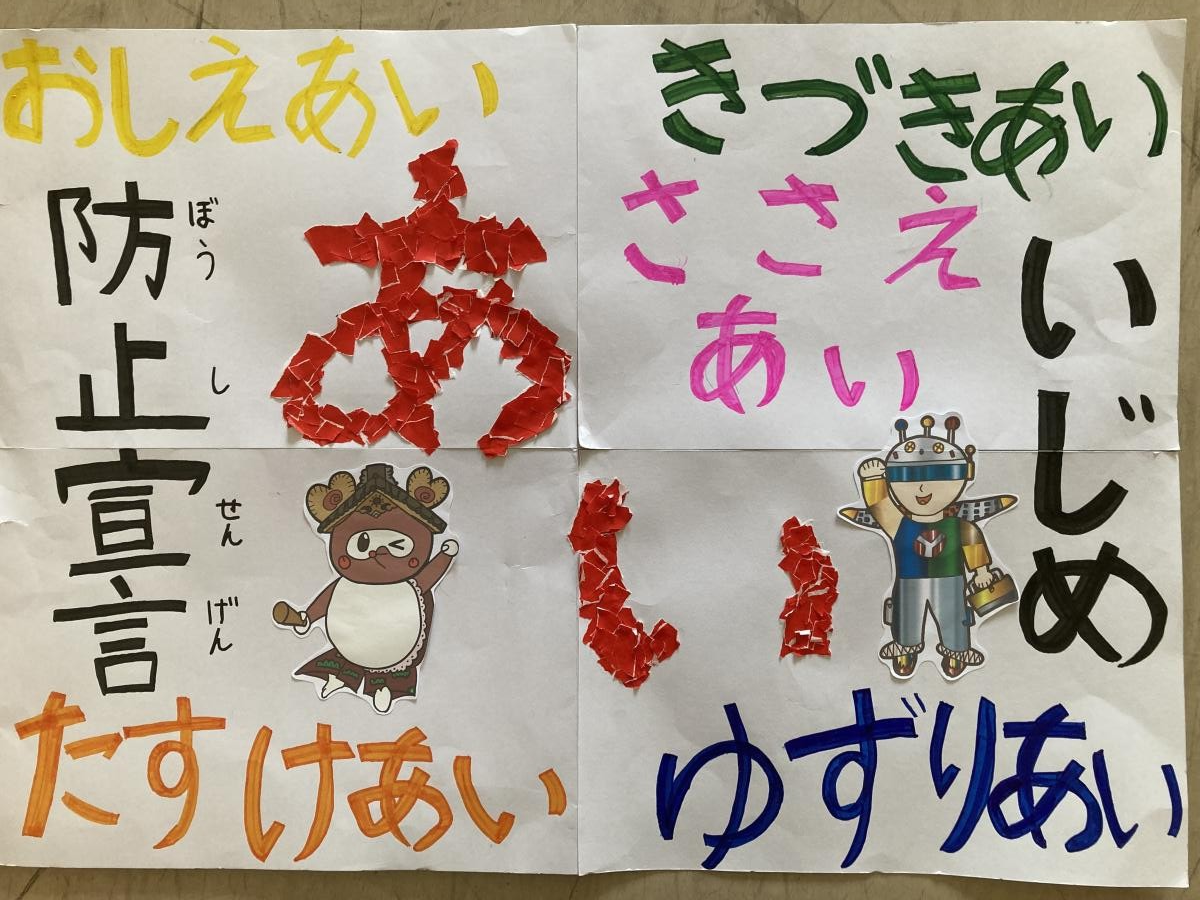 いじめ
防止宣言
ぼうしせんげん
あい
おしえあい
きづきあい
ささえ
あい
たすけあい
ゆずりあい